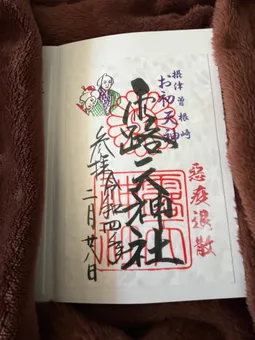 摂津曽根崎
お初天神
露天神社
悪疫退散
参拝 令和四年
二月廿八日